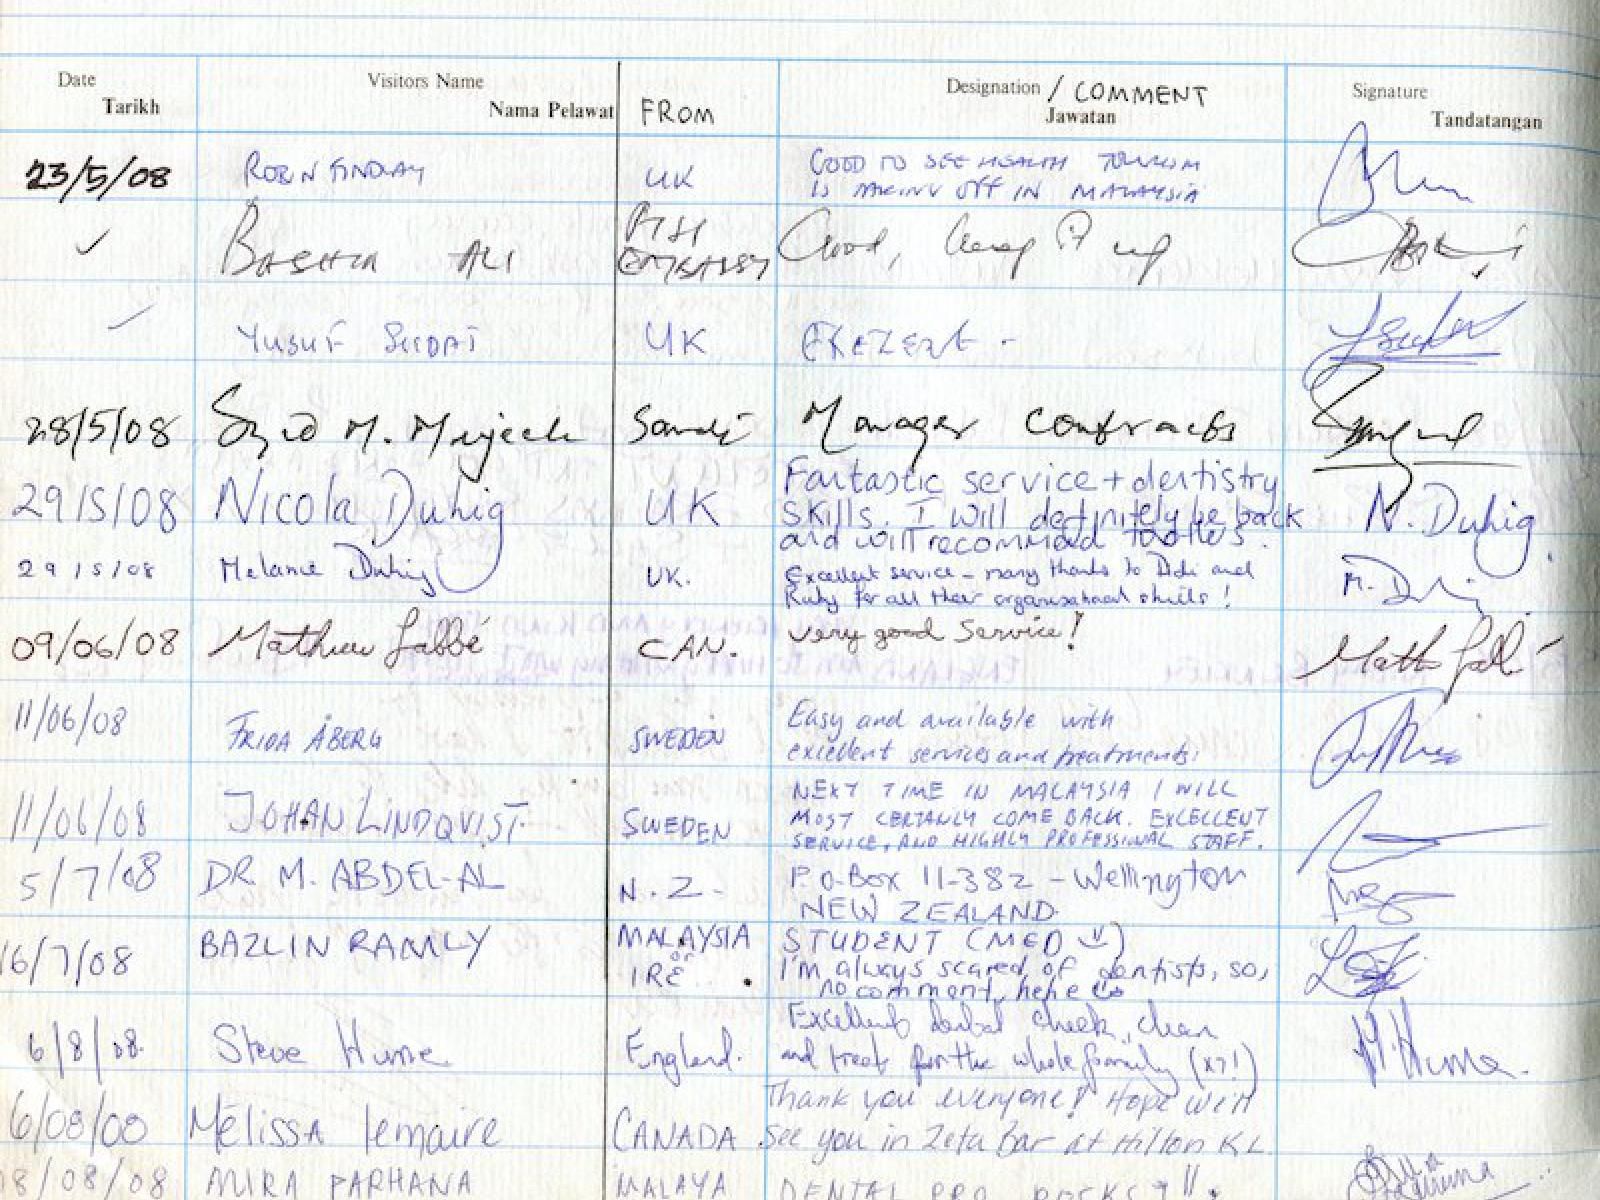 Date Visitors Name Designation / COMMENT Signature
Tarikh Nama Pelawat FROM Jawatan Tandatangan
23/5/08 ROBIN FINDLAY UK GOOD TO SEE HEALTH TOURISM
IS TAKING OFF IN MALAYSIA
BASHIR ALI
EMBASSY Good, keep it up
YUSUF UK
28/5/08 Syed M. Saudi Manager Contracts
29/5/08 Nicola Duhig UK Fantastic service + dentistry
skills. I will definitely be back
and will recommend to others. N. Duhig
29/5/08 Melanie Duhig UK. Excellent service - many thanks to Didi and
Ruby for all their organisational skills! M. Duhig
09/06/08 Mathieu Labbé CAN. Very good Service!
11/06/08 FRIDA ÅBERG SWEDEN Easy and available with
excellent services and treatments!
11/06/08 JOHAN LINDQVIST SWEDEN NEXT TIME IN MALAYSIA I WILL
MOST CERTANLY COME BACK. EXCELLENT
SERVICE, AND HIGHLY PROFESSIONAL STAFF.
5/7/08 DR. M. ABDEL-AL N.Z- P.O-Box 11-382 - Wellington
NEW ZEALAND.
16/7/08 BAZLIN RAMLY MALAYSIA STUDENT (MED)
or
IRE I'm always scared of dentists, so,
no comment, hehe
6/8/08. Steve Hume England. Excellent dental check, clean
and treat for the whole family (x7!) Hume.
6/08/08 Mélissa lemaire CANADA Thank you everyone! Hope we'll
see you in Zeta Bar at Hilton KL.
08/08/08 MIRA FARHANA MALAYA DENTAL PRO ROCKS!!